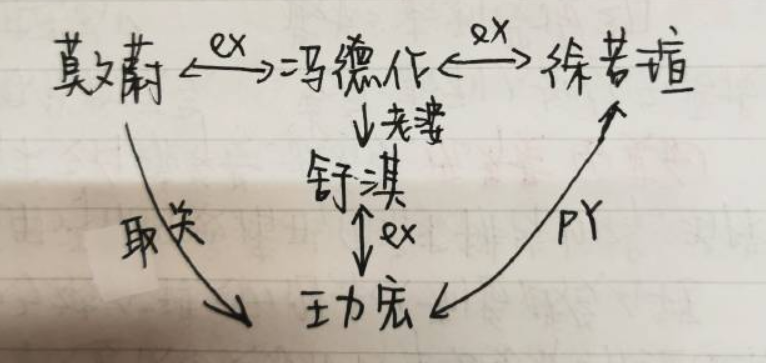 莫文蔚 ex 冯德伦 ex 徐若瑄
老婆
舒淇
取关 ex PY
王力宏